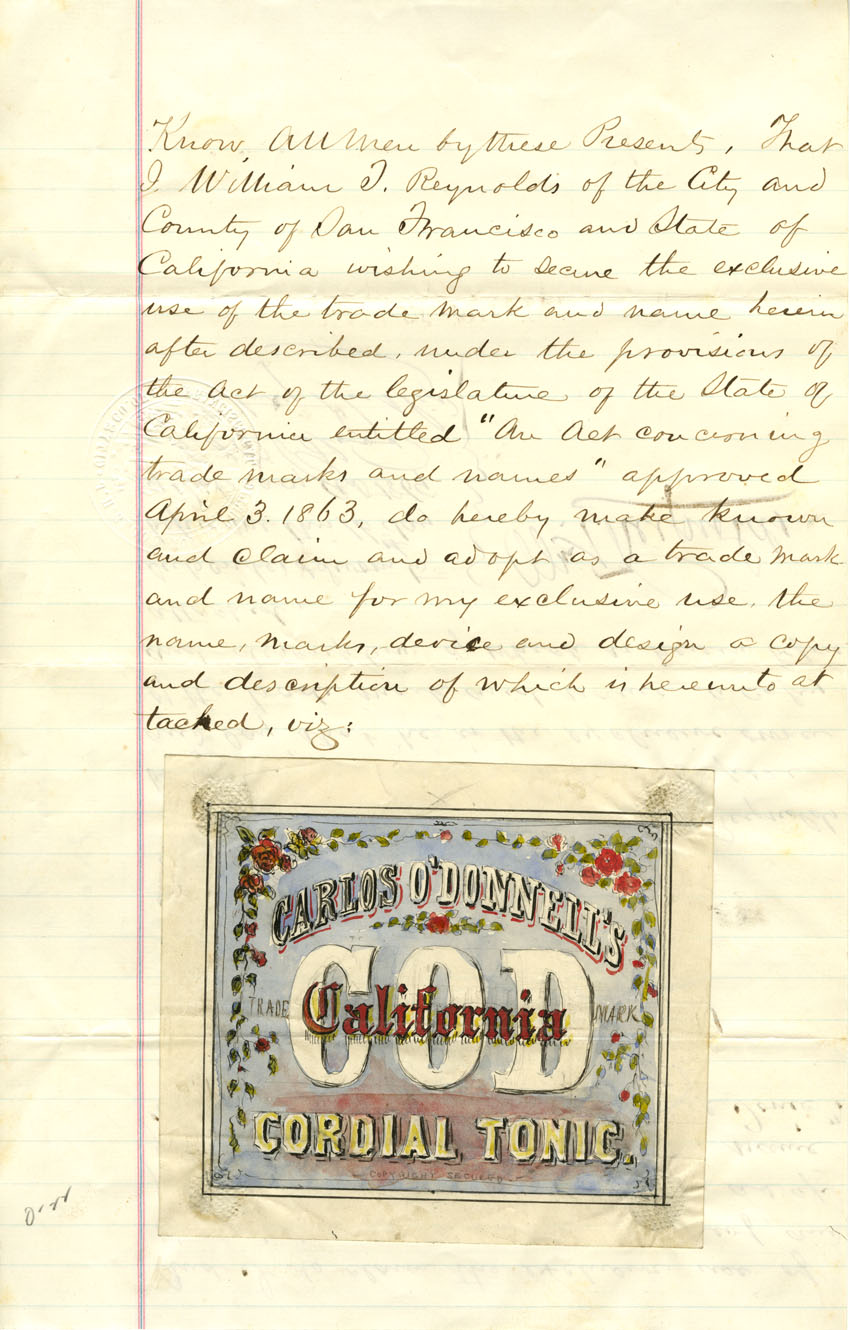 Know All Men by these Presents, That
I William T. Reynolds of the City and
County of San Francisco and State of
California wishing to secure the exclusive
use of the trade mark and name herein
after described, under the provisions of
the Act of the legislature of the State of
California entitled "An Act concerning
trade marks and names" approved
April 3. 1863, do hereby make known
and claim and adopt as a trade mark
and name for my exclusive use, the
name, marks, device and design a copy
and description of which is hereunto at
tached, viz:
CARLOS O'DONNELL'S
COD
TRADE California MARK
CORDIAL TONIC.
COPYRIGHT SECURED